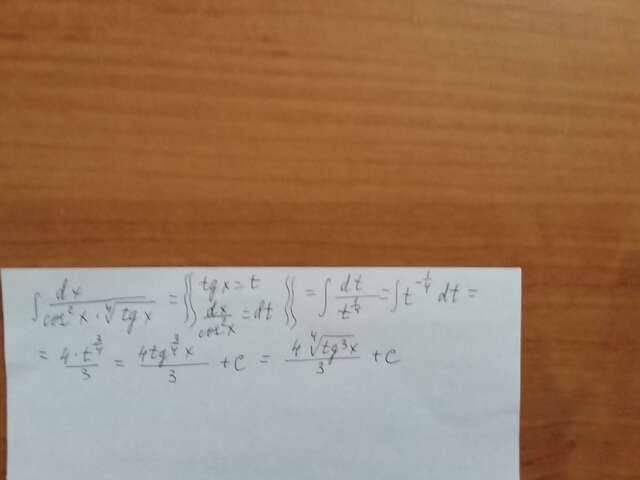 ∫ dx / (cos²x · ⁴√tg x) = { tg x = t ; dx / cos²x = dt } = ∫ dt / t^(1/4) = ∫ t^(-1/4) dt =
= 4 · t^(3/4) / 3 = 4tg^(3/4) x / 3 + c = 4 ⁴√tg³x / 3 + c